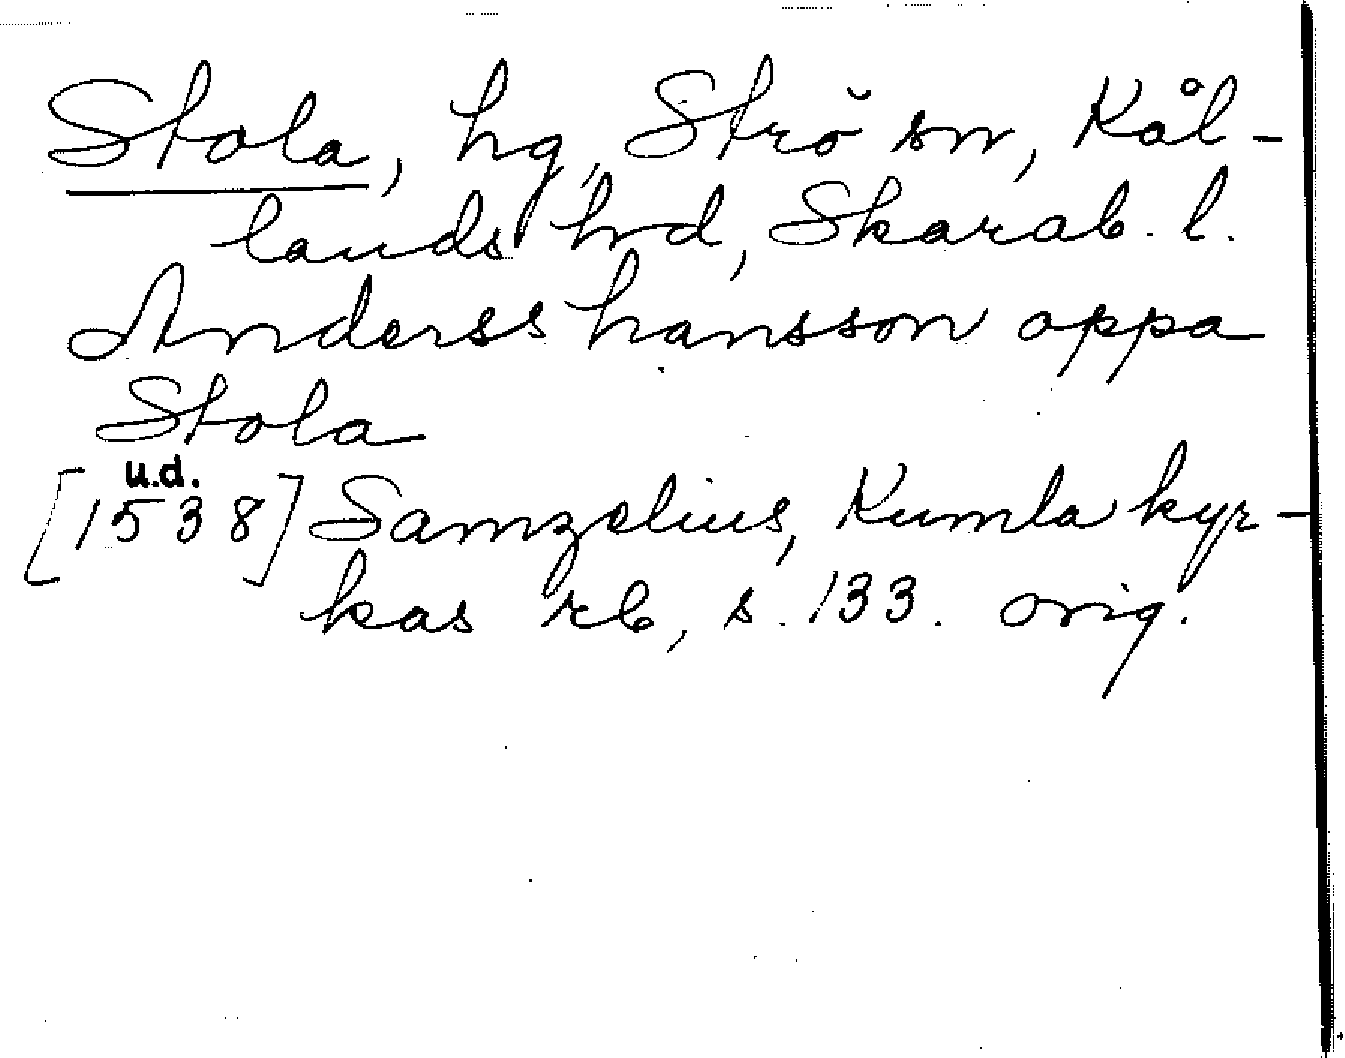 Stola, hg, Strö sn, Kål-
lands hrd, Skarab. l.
Anderss hansson oppa
Stola
u.d.
[1538] Samzelius, Kumla kyr-
kas rb, s. 133. orig.